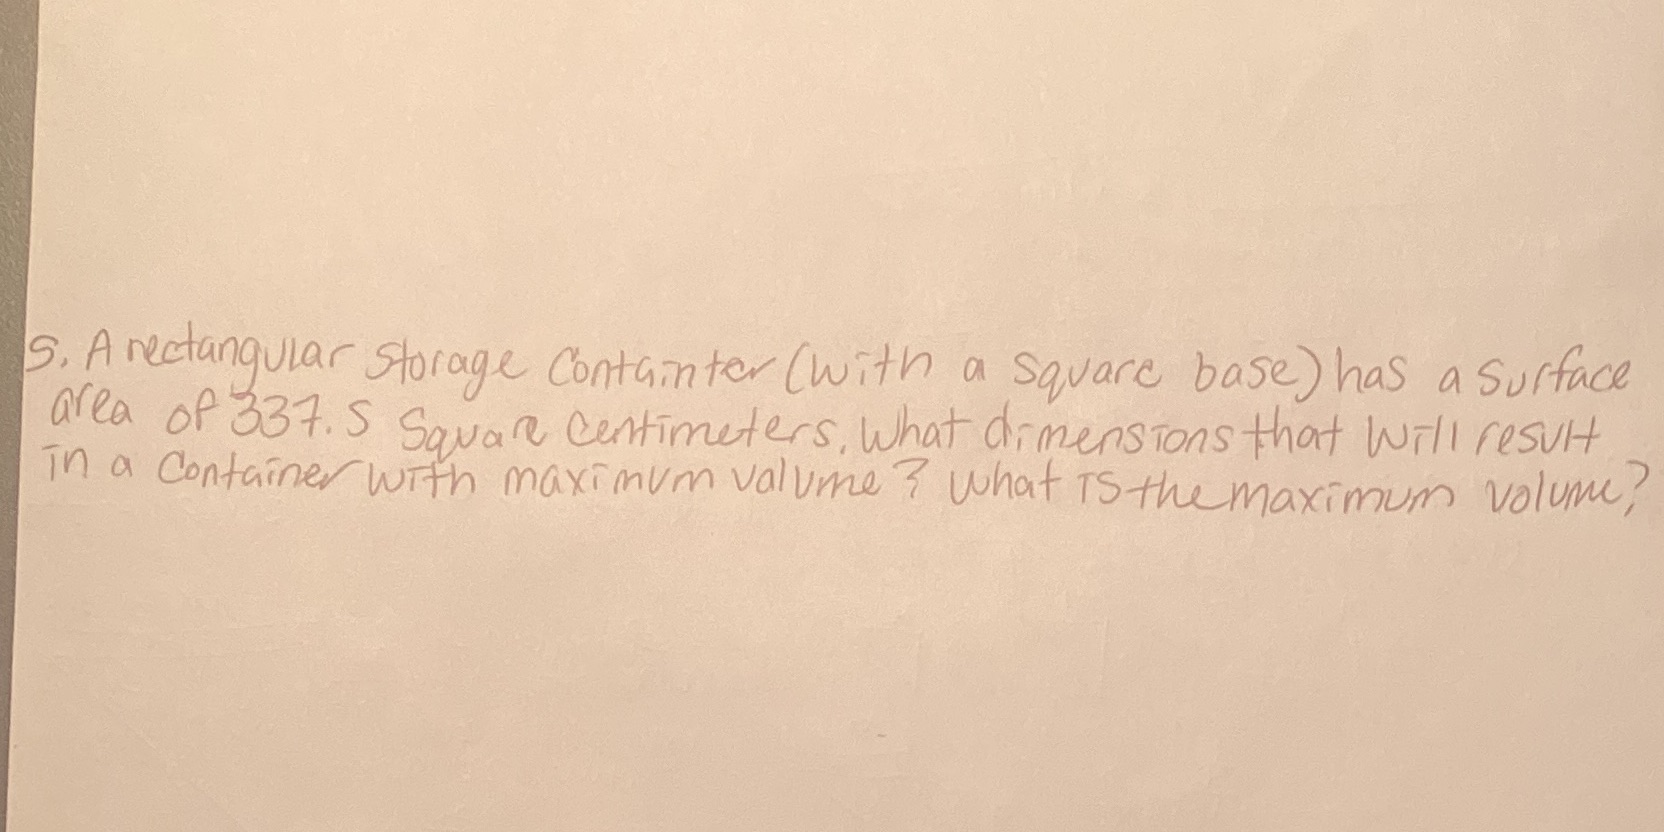 5. A rectangular Storage Containter (with a square base) has a surface
area of 337.5 Square Centimeters. What dimensions that Will result
in a Container with maximum valume? What is the maximum volume?